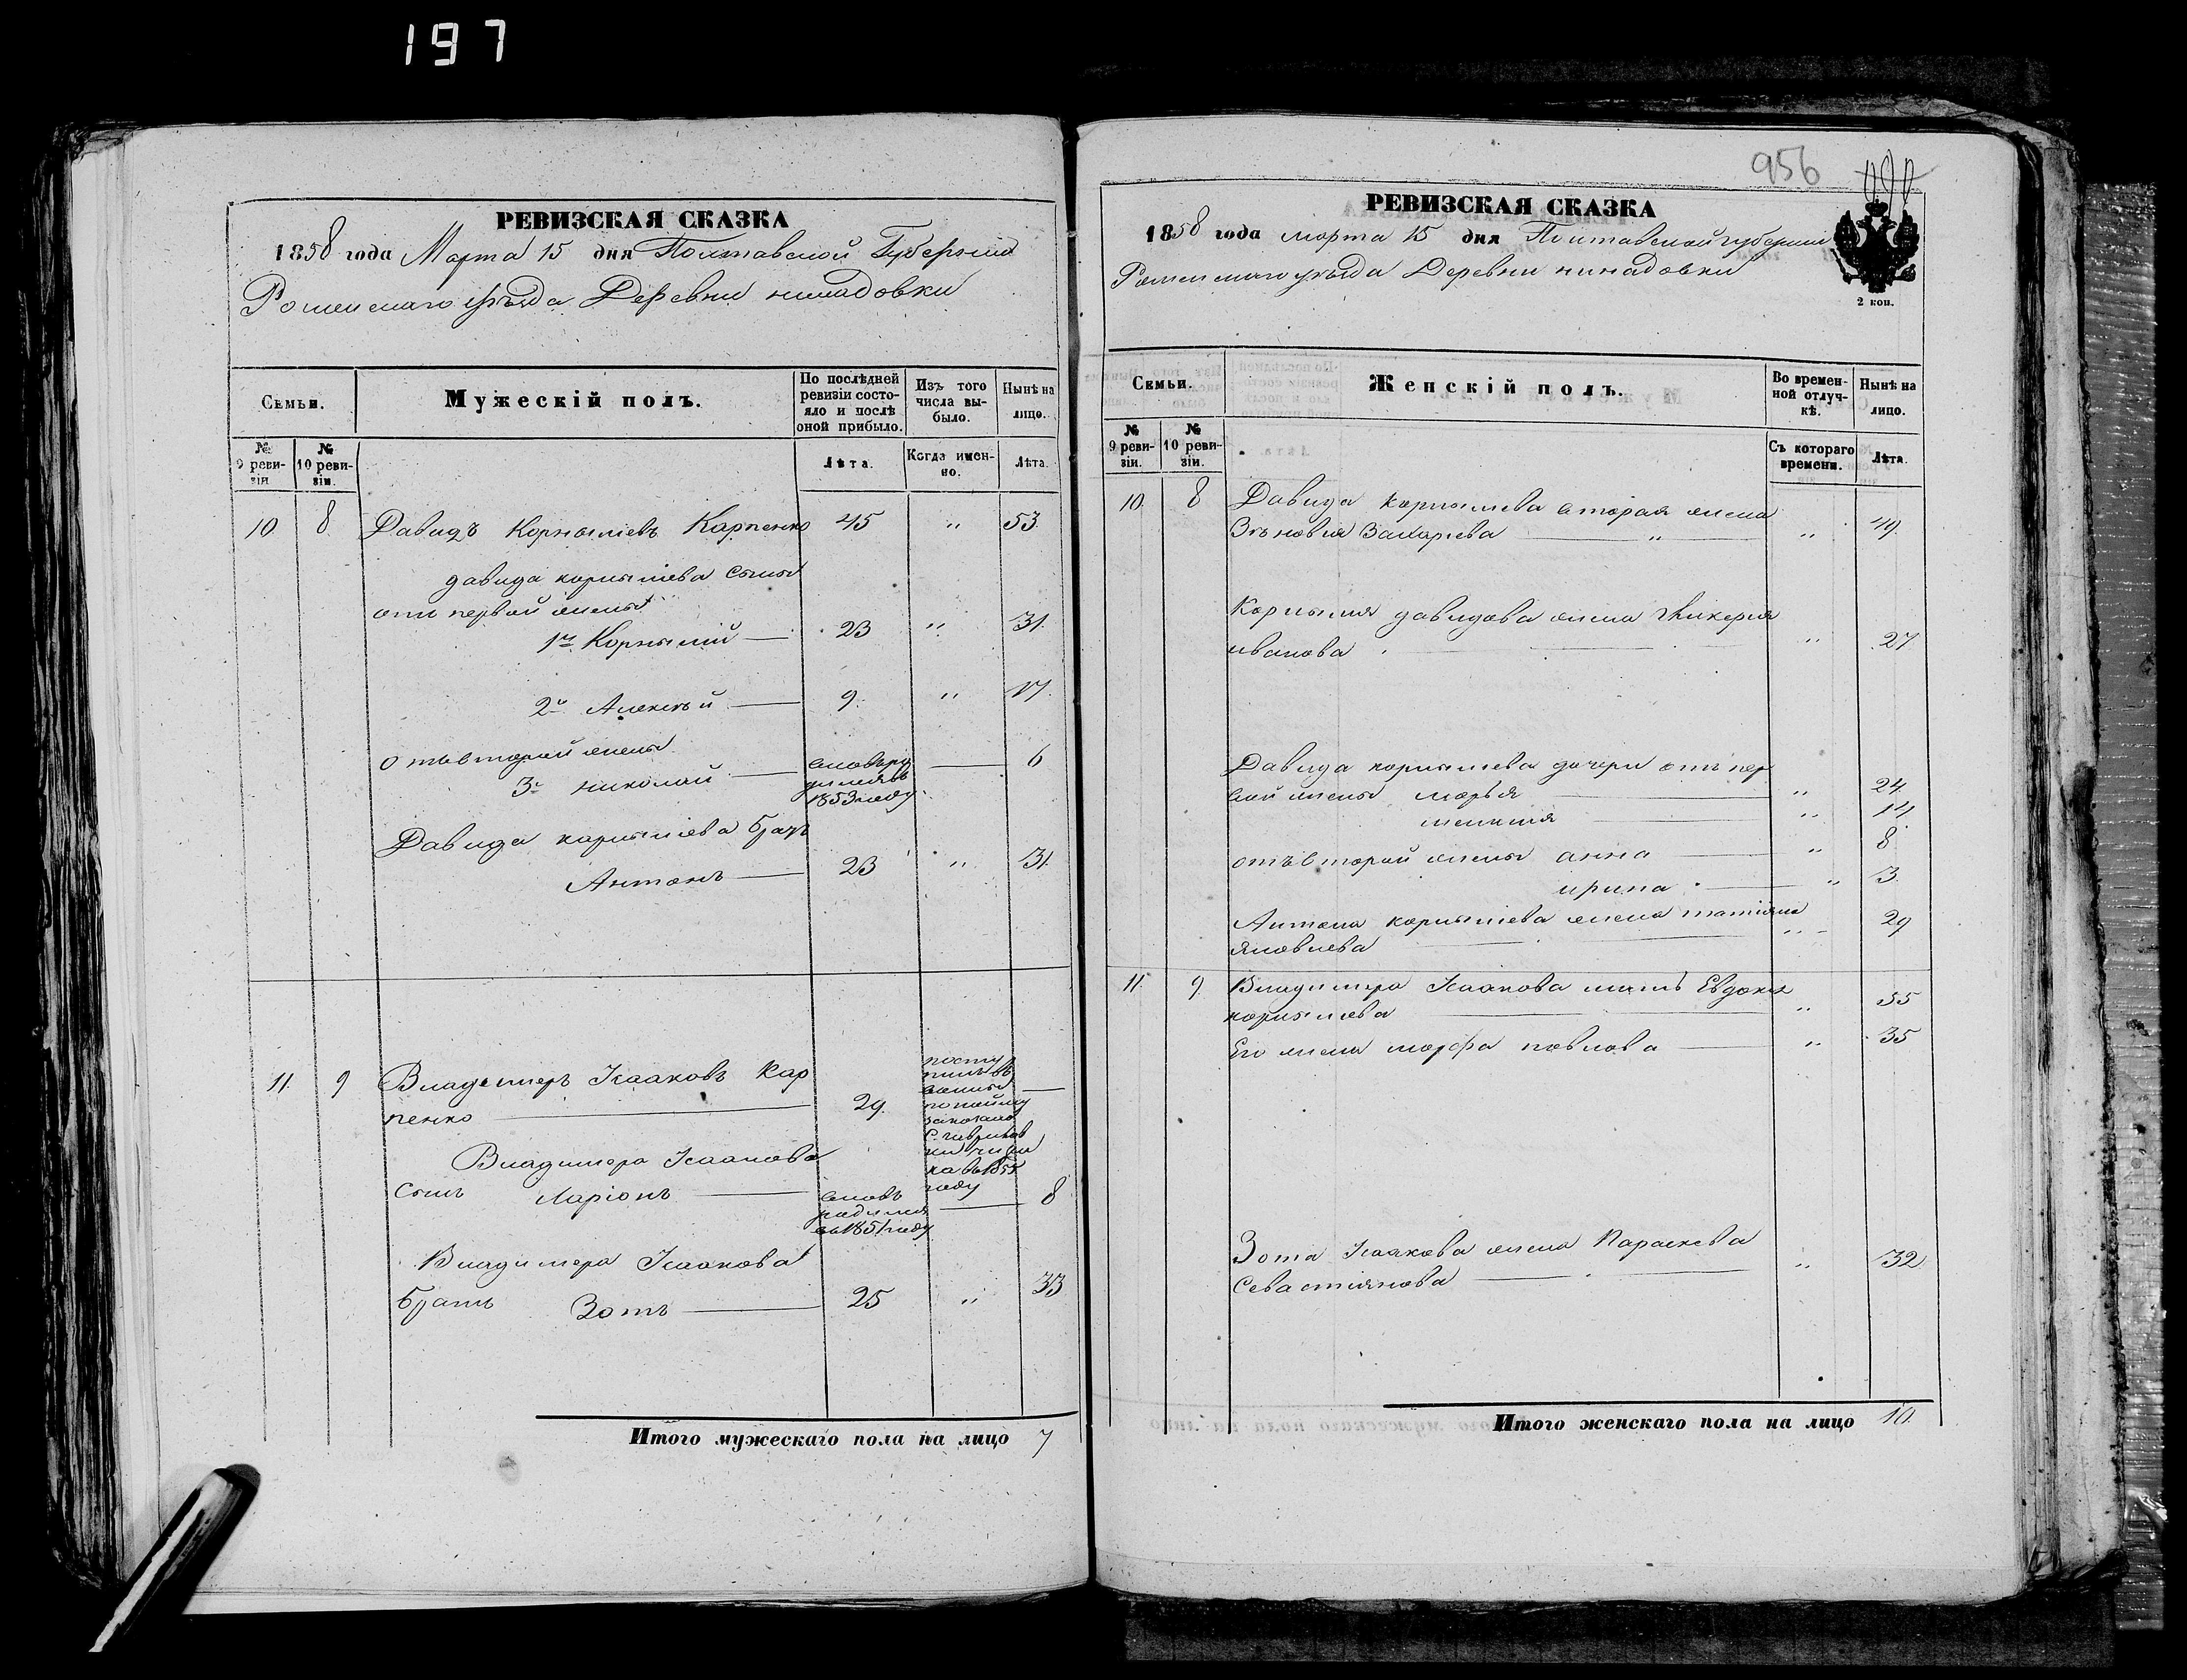 197
РЕВИЗСКАЯ СКАЗКА
1858 года Марта 15 дня Полтавской Губерніи
Роменскаго уѣзда Деревни
Семьи.
Мужескій полъ.
По послѣдней ревизіи состояло и послѣ оной прибыло.
Изъ того числа выбыло.
Нынѣ на лицо.
№ 9 ревизіи.
№ 10 ревизіи.
Лѣта.
Когда именно.
Лѣта.
10 8 Давидъ Корныліевъ Карпенко 45 " 53
давида корныліева сыны
отъ первой жены
1й Корнылій 23 " 31.
2й Алексѣй 9. " 17.
отъ второй жены
3й николай 6
вновь ро
дился въ
1853 году.
Давида корныліева братъ
Антонъ 23 " 31.
11. 9 Владимеръ Исааковъ Кар
пенко 29.
посту
пилъ въ
году
Владимера Исаакова
сынъ Ларіонъ 8
вновь
родился
въ 1851 году
Владимера Исаакова
братъ Зотъ 25 " 33
Итого мужескаго пола на лицо 7
956
РЕВИЗСКАЯ СКАЗКА
1858 года марта 15 дня Полтавской губерніи
Роменскаго уѣзда Деревни
2 коп.
Семьи.
Женскій полъ.
Во временной отлучкѣ.
Нынѣ на лицо.
№ 9 ревизіи.
№ 10 ревизіи.
Съ котораго времени.
Лѣта.
10. 8 Давида корныліева вторая жена
Зѣновія Захаріева " " 49.
Корнылія давидова жена Гликерія
иванова " 27
Давида корныліева дочери отъ пер
вой жены марья " 24.
" 14
отъ второй жены анна " 8
ирина " 3.
Антона корныліева жена татіяна
яковлева " 29
11. 9. Владимера Исаакова мать Евдокія
корныліева " 55
Его жена марфа павлова " 35
Зота Исаакова жена Параскева
Севастіянова " 32
Итого женскаго пола на лицо 10.